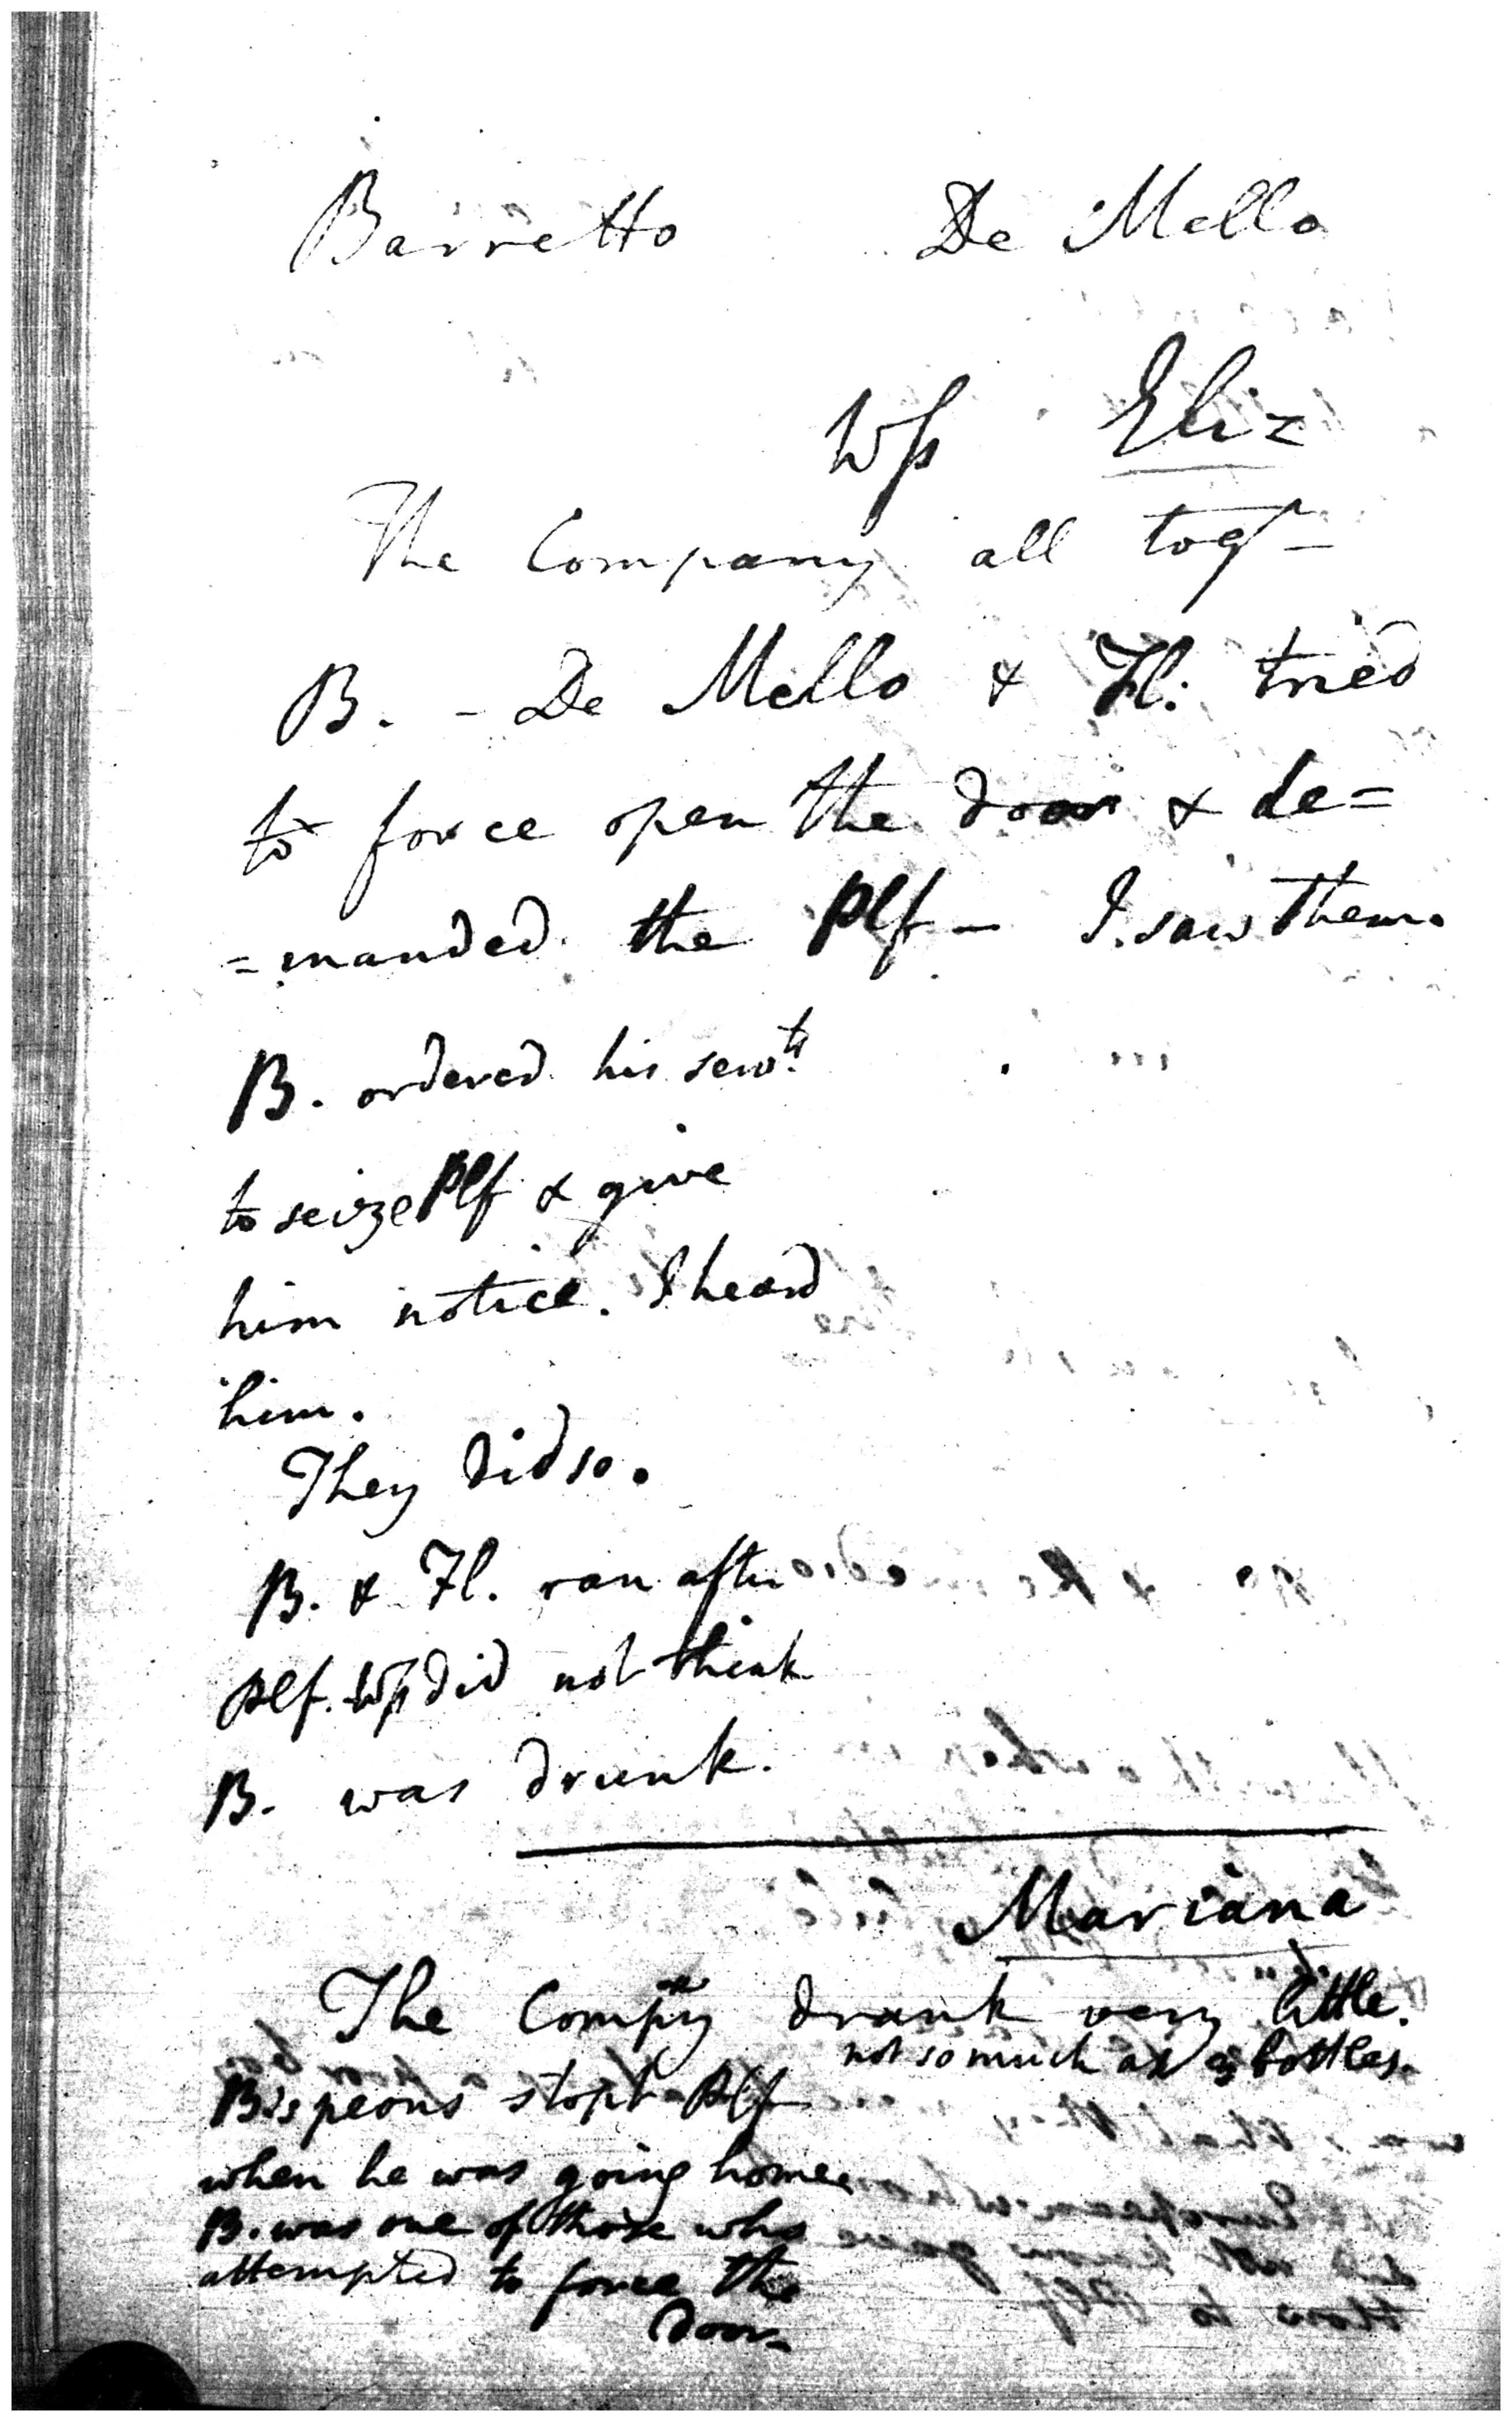 Barretto De Mello
Wss Eliz
The Company all togr
B. - De Mello & Fl: tried
to force open the door & de=
=manded the Plf - I saw them.
B. ordered his servts
to seize Plf & give
him notice. I heard
him.
They did so.
B. & Fl. ran after
Plf. Wss did not think
B. was drunk.
Mariana
The Compy drank very little.
not so much as 3 bottles.
B's peons stopt Plf
when he was going home.
B. was one of those who
attempted to force the
door